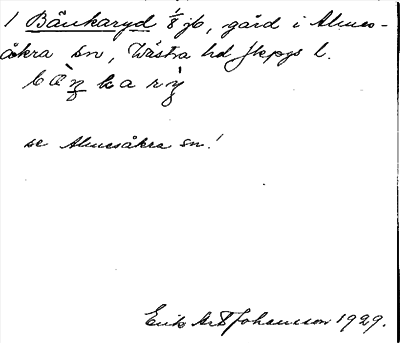 1 Bänkaryd 1/8 jb, gård i Almes-
åkra sn, Västra hd Jkpgs l.
se Almesåkra sn!
Erik Johansson 1929.